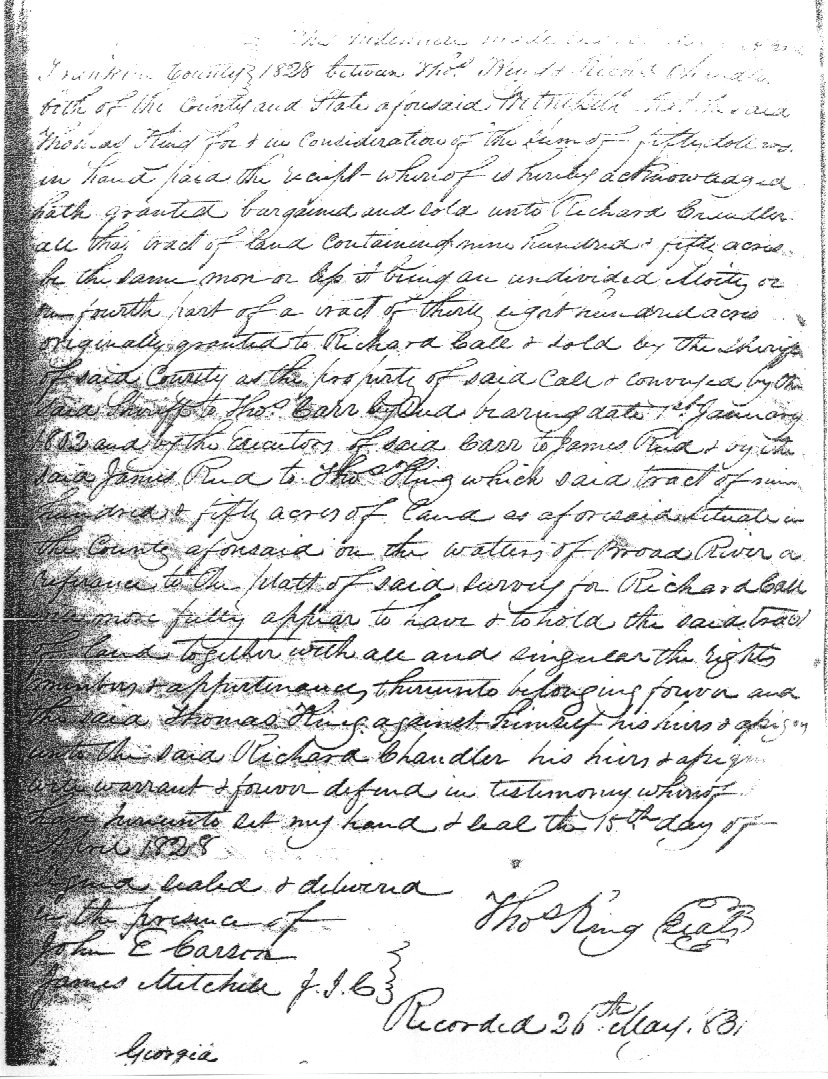 This Indenture made
Franklin County } 1828 between Thos King & Richd Chandler
both of the County and State aforesaid Witnesseth that the said
Thomas King for & in consideration of the sum of fifty dollars
in hand paid the receipt whereof is hereby acknowledged
hath granted bargained and sold unto Richard Chandler
all that tract of land containing nine hundred & fifty acres
be the same more or less it being an undivided Moity or
one fourth part of a tract of thirty eight hundred acres
originally granted to Richard Call & sold by the Sheriff
of said County as the property of said Call & conveyed by the
said Sheriff to Thos Carr by Deed bearing date 1st January
1802 and by the Executors of said Carr to James Reid & by the
said James Reid to Thos King which said tract of nine
hundred & fifty acres of land as aforesaid situate in
the County aforesaid on the watters of Broad River a
referance to the platt of said survey for Richard Call
will more fully appear to have & to hold the said tract
of land together with all and singular the rights
members & appurtinances thereunto belonging forever and
the said Thomas King against himself his heirs & assigns
unto the said Richard Chandler his heirs & assigns
will warrant & forever defend in testimony whereof
have hereunto set my hand & seal the 15th day of
April 1828
Signed sealed & delivered
in the presence of
Thos King (Seal)
John E Carson
James Mitchell J.I.C }
Recorded 26th May 1831
Georgia